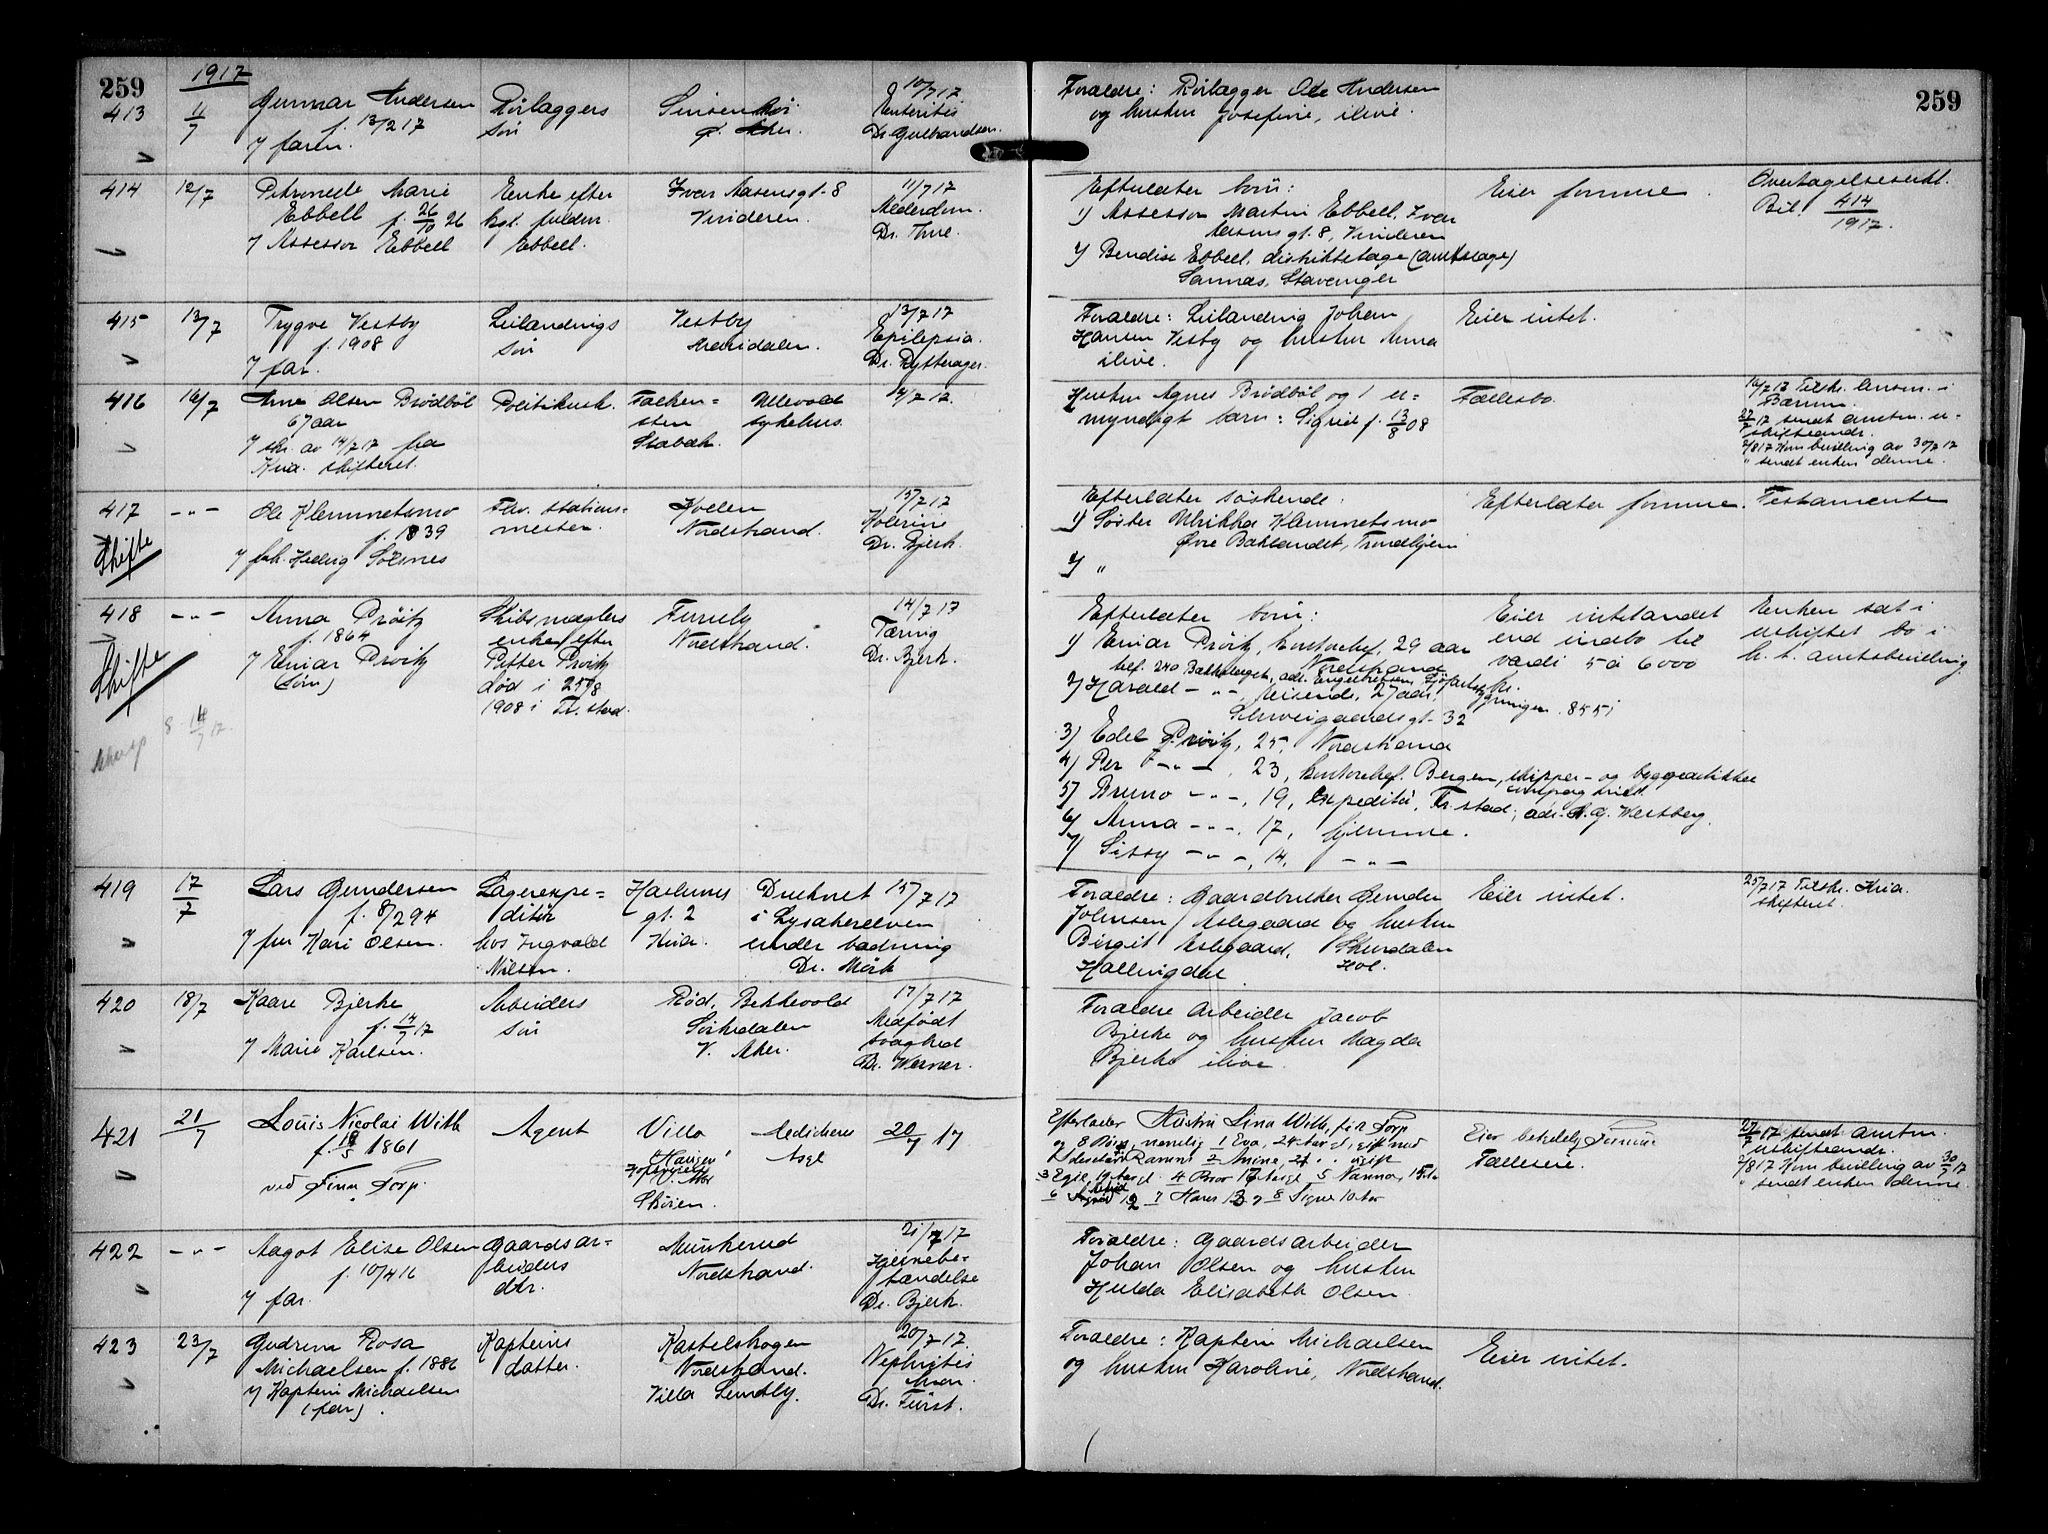 259
1917
259
413
11/7
Gunnar Andersen
f. 13/2 17
faren.
Rørlæggers
søn
Sinsen
Aker.
10/7 17
Enteritis
Dr. Gulbrandsen.
Forældre: Rørlægger Ole Andersen
og hustru Josefine, ilive.
414
12/7
Petronelle Marie
Ebbell f. 26/10 26
Assessor Ebbell
Enke efter
kgl. fuldm.
Ebbell.
Ivar Aasens gt. 8
Vinderen.
11/7 17
Alderdom.
Dr. Thue.
Efterlater børn:
1) Assessor Martin Ebbell, Ivar
Aasens gt. 8, Vinderen
2) Bendix Ebbell, distriktslæge (amtslæge)
Stavanger
Eier formue.
Overtagelseserkl.
Bil. 414/1917.
415
13/7
Trygve Vestby
f. 1908
far.
Leilændings
søn
Vestby
Maridalen.
13/7 17
Epilepsia.
Dr. Rytterager.
Forældre: Leilænding Johan
Hansen Vestby og hustru Anna
ilive.
Eier intet.
416
16/7
Arne Olsen Brødbøl
67 aar
skr. av 14/7 17 fra
Kria. skifteret.
Politikonst.
Falken=
sten
Stabæk
Ullevold
sykehus.
12/7 17.
Hustru Agnes Brødbøl og 1 u=
myndigt barn: Sigrid f. 13/8 08
Fællesbo.
16/7 17 Tilskr. lensm. i
Bærum.
27/7 17 sendt amtm. u=
skifteandr.
2/8 17 Kom bevilling av 30/7 17
" sendt enken denne.
417
— " —
Skifte
Ole Klemmetsmo
f. 1839
frk. Hedvig Solsnes
Fhv. stations=
mester.
Solveien
Nordstrand.
15/7 17
Kolerine
Dr. Bjerk.
Efterlater søskende:
1) Søster Ulrikka Klemmetsmo
Øvre Baklandet, Trondhjem
2) "
Efterlater formue.
Testamente
418
— " —
Skifte
Anna Prøitz
f. 1864
Einar Prøitz
(søn)
Skibsmæglers
enke efter
Petter Prøitz
død i 25/8
1908 i Fr.stad.
Furuly
Nordstrand.
14/7 17
Tæring
Dr. Bjerk.
8 14/7 17.
Efterlater børn:
1) Einar Prøitz, kontorchef. 29 aar
Nordstrand
2) Harald — " —, reisende, 27 aar,
Schweigaardsgt. 32
3) Edel Prøitz, 25, Nordstrand
4) Per — " —, 23, kontorchef. Bergen,
5) Bruno — " —, 19, Expeditør, Fr.stad; adr.
6) Anna — " —, 17, hjemme.
7) Sissy — " —, 14, — " —
Eier intet andet
end indbo til
værdi 5 à 6000
Enken sat i
uskiftet bo i
h. t. amtsbevilling.
419
17/7
Lars Gundersen
f. 8/2 94
fru Kari Olsen.
Lagerexpe=
ditør
hos Ingvald
Nilsen.
gt. 2
Kria.
Druknet
i Lysakerelven
under badning
Dr. Mørk
15/7 17
Forældre: Gaardbruker Gunder
Johnsen Aslegaard og hustru
Birgit Aslegaard, Skurdalen
Hallingdal. Hol.
Eier intet.
25/7 17 Tilskr. Kria.
skifteret.
420
18/7
Kaare Bjerke
f. 14/7 17
Marie Karlsen.
Arbeiders
søn
Rød, Bekkevold
Sørkedalen
V. Aker.
17/7 17
Medfødt
svaghed
Dr. Werner.
Forældre Arbeider Jacob
Bjerke og hustru Magda
Bjerke ilive.
421
21/7
Louis Nicolai With
1861
ved Fina Torp.
Agent
Villa
Haugen
V. Aker
Skøien.
20/7 17
Efterlader Hustru Lina With, før Torp
og 8 Børn, nemlig 1 Eva, 24 aar gl., gift med
2 Anine, 21 " ugift
4 Roar 17 aar gl. 5 Nanna, 15 aar
7 Hans 13 og 8 Signe 10 aar
Eier betydelig Formue
Fælleseie.
27/7 17 sendt amtm.
uskifteandr.
2/8 17 Kom bevilling av 30/7 17
" sendt enken denne.
422
— " —
Aagot Elise Olsen
f. 10/4 16
far.
Gaardsar=
beiders
dtr.
Munkerud
Nordstrand.
21/7 17
Hjernebe=
tændelse
Dr. Bjerk.
Forældre: Gaardsarbeider
Johan Olsen og hustru
Hulda Elisabeth Olsen.
423
23/7
Gudrun Rosa
Michaelsen f. 1886
Kaptein Michaelsen
(far).
Kapteins
datter.
Kastelskogen
Nordstrand.
Villa Lundby.
20/7 17.
Nephritis
kron.
Dr. Fürst.
Forældre: Kaptein Michaelsen
og hustru Karoline, Nordstrand.
Eier intet.